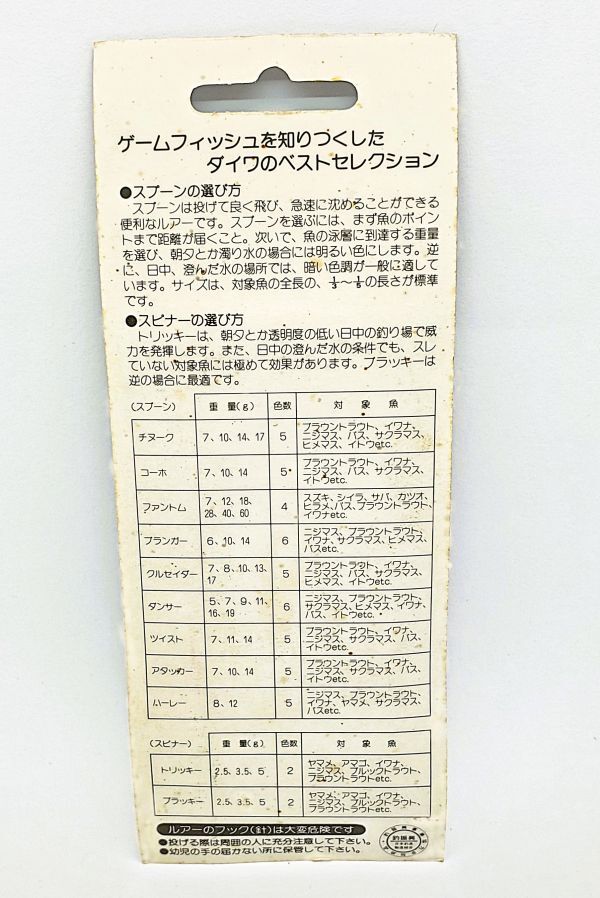 ゲームフィッシュを知りつくした
ダイワのベストセレクション
●スプーンの選び方
スプーンは投げて良く飛び、急速に沈めることができる
便利なルアーです。スプーンを選ぶには、まず魚のポイン
トまで距離が届くこと。次いで、魚の泳層に到達する重量
を選び、朝夕とか濁り水の場合には明るい色にします。逆
に、日中、澄んだ水の場所では、暗い色調が一般に適して
います。サイズは、対象魚の全長の、 の長さが標準
です。
●スピナーの選び方
トリッキーは、朝夕とか透明度の低い日中の釣り場で威
力を発揮します。また、日中の澄んだ水の条件でも、スレ
ていない対象魚には極めて効果があります。ブラッキーは
逆の場合に最適です。
(スプーン) 重量(g) 色数 対象魚
チヌーク 7、10、14、17 5 ブラウントラウト、イワナ、
ニジマス、バス、サクラマス、
ヒメマス、イトウetc.
コーホ 7、10、14 5 ブラウントラウト、イワナ、
ニジマス、バス、サクラマス、
イトウetc.
ファントム 7、12、18、
28、40、60 4 スズキ、シイラ、サバ、カツオ、
ヒラメ、バス、ブラウントラウト、
イワナetc.
プランガー 6、10、14 6 ニジマス、ブラウントラウト、
イワナ、サクラマス、ヒメマス、
バスetc.
クルセイダー 7、8、10、13、
17 5 ブラウントラウト、イワナ、
ニジマス、バス、サクラマス、
ヒメマス、イトウetc.
ダンサー 5、7、9、11、
16、19 6 ニジマス、ブラウントラウト、
サクラマス、ヒメマス、イワナ、
バス、イトウetc.
ツイスト 7、11、14 5 ブラウントラウト、イワナ、
ニジマス、サクラマス、バス、
イトウetc.
アタッカー 7、10、14 5 ブラウントラウト、イワナ、
ニジマス、サクラマス、バス、
イトウetc.
ハーレー 8、12 5 ニジマス、ブラウントラウト、
イワナ、ヤマメ、サクラマス、
バスetc.
(スピナー) 重量(g) 色数 対象魚
トリッキー 2.5、3.5、5 2 ヤマメ、アマゴ、イワナ、
ニジマス、ブルックトラウト、
ブラウントラウトetc.
ブラッキー 2.5、3.5、5 2 ヤマメ、アマゴ、イワナ、
ニジマス、ブルックトラウト、
ブラウントラウトetc.
ルアーのフック(針)は大変危険です
●投げる際は周囲の人に充分注意して下さい。
●幼児の手の届かない所に保管して下さい。
釣振興